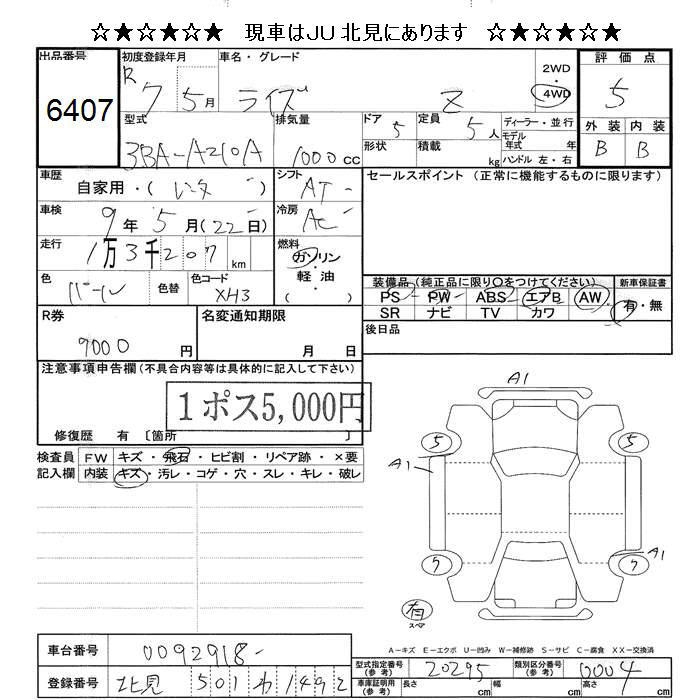 ☆★☆★☆★ 現車はJU北見にあります ☆★☆★☆★
出品番号 初度登録年月 車名・グレード 評価点
6407 R7 5月 ライズ Z 2WD・4WD 5
型式 排気量 ドア 定員 ディーラー・並行 外装 内装
3BA-A210A 1000cc 5 5人 モデル年式 年 B B
形状 積載 kg ハンドル 左・右
車歴 シフト セールスポイント (正常に機能するものに限ります)
自家用・( ) AT
車検 冷房
9年5月(22日) AC
走行 燃料
1万3千207km ガソリン・軽油・( )
色 色替 色コード
パール XH3
装備品 (純正品に限り○をつけてください) 新車保証書
PS PW ABS エアB AW 有・無
SR ナビ TV カワ
R券 名変通知期限 後日品
9000円 月 日
注意事項申告欄 (不具合内容等は具体的に記入して下さい)
1ポス5,000円
修復歴 有 〔箇所 〕
検査員 FW キズ・飛石・ヒビ割・リペア跡・×要
記入欄 内装 キズ・汚レ・コゲ・穴・スレ・キレ・破レ
A1
5 5
A1
A1
5 5
有
スペア
A-キズ E-エクボ U-凹み W-補修跡 S-サビ C-腐食 XX-交換済
車台番号 0092918 型式指定番号(参考) 20295 類別区分番号(参考) 0004
登録番号 北見 501 わ 1492 車庫証明用(参考) 長さ cm 幅 cm 高さ cm